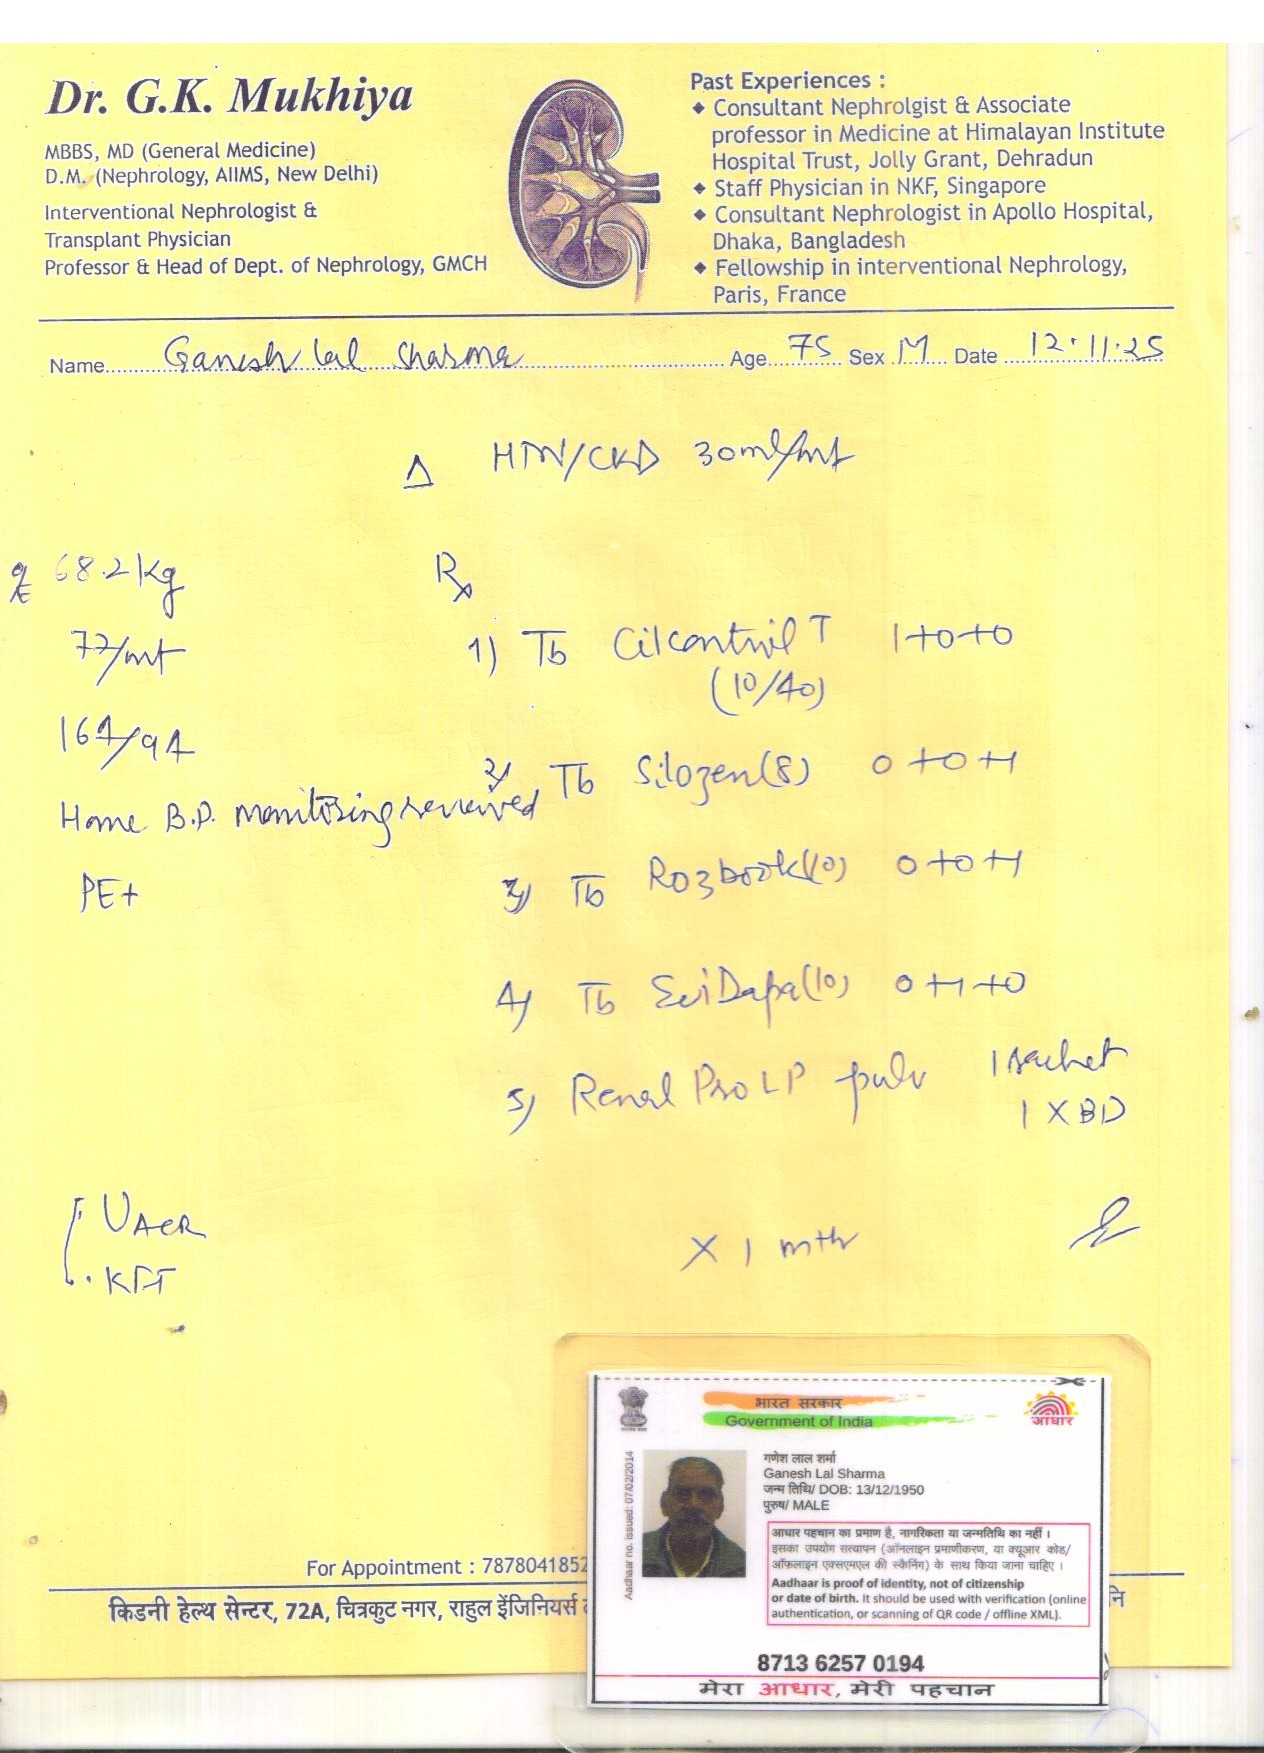 Dr. G.K. Mukhiya
MBBS, MD (General Medicine)
D.M. (Nephrology, AIIMS, New Delhi)
Interventional Nephrologist &
Transplant Physician
Professor & Head of Dept. of Nephrology, GMCH
Past Experiences :
◆ Consultant Nephrolgist & Associate
professor in Medicine at Himalayan Institute
Hospital Trust, Jolly Grant, Dehradun
◆ Staff Physician in NKF, Singapore
◆ Consultant Nephrologist in Apollo Hospital,
Dhaka, Bangladesh
◆ Fellowship in interventional Nephrology,
Paris, France
Name Ganesh lal Sharma Age 75 Sex M Date 12.11.25
Δ HTN/CKD 30ml/mt
68.2 kg
77/mt
164/94
Home B.P. monitoring reviewed
PE+
Rx
1) Tb Cilcontril T 1+0+0
(10/40)
2) Tb Silozen (8) 0+0+1
3) Tb Rozbook (10) 0+0+1
4) Tb EviDapa (10) 0+1+0
5) Renal Pro LP pulv 1 sachet
1 X BD
UACR
KFT
X 1 mth
भारत सरकार
Government of India
आधार
Aadhaar no. issued: 07/02/2014
गणेश लाल शर्मा
Ganesh Lal Sharma
जन्म तिथि/ DOB: 13/12/1950
पुरुष/ MALE
आधार पहचान का प्रमाण है, नागरिकता या जन्मतिथि का नहीं ।
इसका उपयोग सत्यापन (ऑनलाइन प्रमाणीकरण, या क्यूआर कोड/
ऑफ़लाइन एक्सएमएल की स्कैनिंग) के साथ किया जाना चाहिए ।
Aadhaar is proof of identity, not of citizenship
or date of birth. It should be used with verification (online
authentication, or scanning of QR code / offline XML).
8713 6257 0194
मेरा आधार, मेरी पहचान
For Appointment : 7878041852
किडनी हेल्थ सेन्टर, 72A, चित्रकुट नगर, राहुल इंजिनियर्स